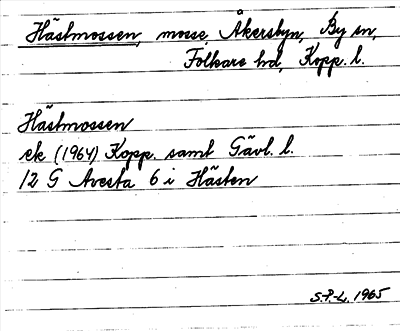 Hästmossen, mosse, Åkersbyn, By sn,
Folkare hd, Kopp. l.
Hästmossen
ek (1964) Kopp. samt Gävl. l.
12 G Avesta 6 i Hästen
S.P-L. 1965